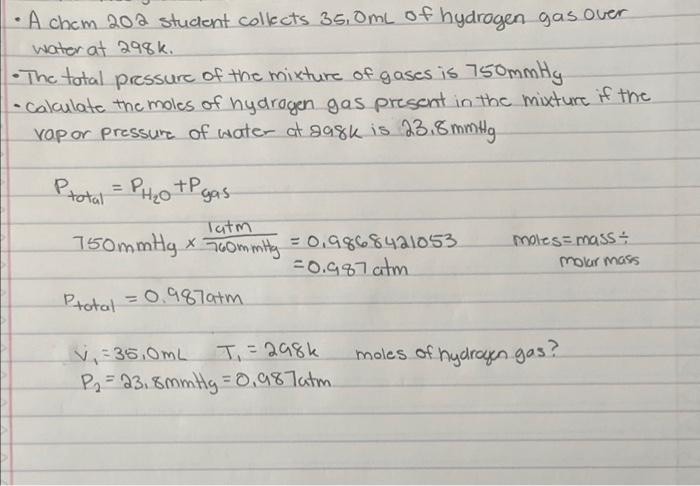 • A chem 202 student collects 35.0mL of hydrogen gas over
water at 298k.
• The total pressure of the mixture of gases is 750mmHg
• calculate the moles of hydrogen gas present in the mixture if the
vapor pressure of water at 298k is 23.8mmHg
P total = P H₂O + P gas
750mmHg x 1atm/760mmHg = 0.9868421053 moles = mass ÷
= 0.987atm molar mass
P total = 0.987atm
V₁ = 35.0mL T₁ = 298k moles of hydrogen gas?
P₂ = 23.8mmHg = 0.987atm